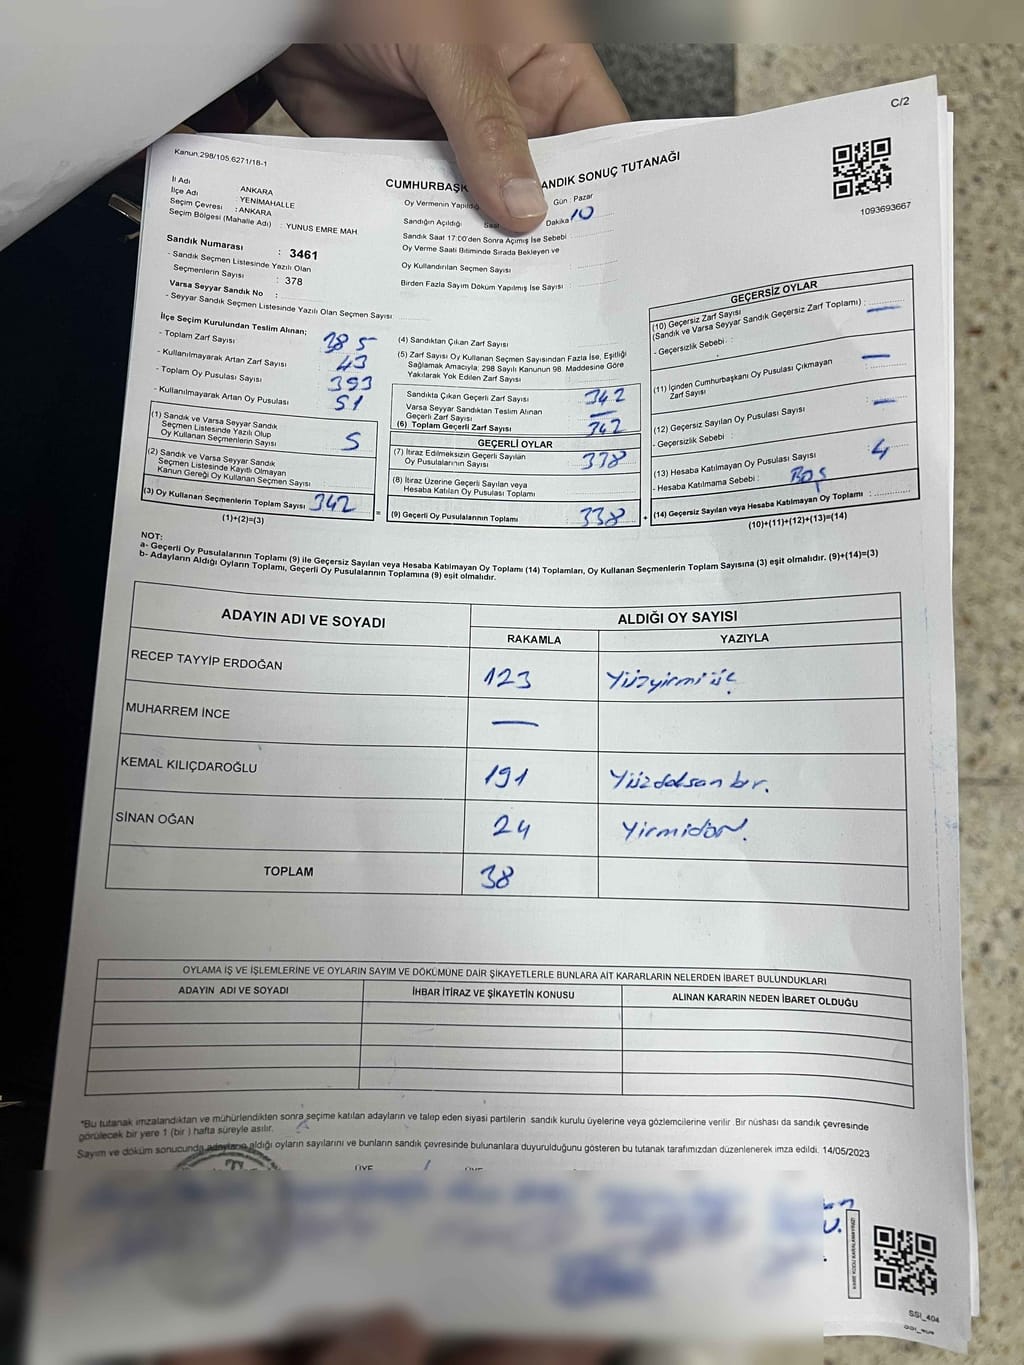 C/2
Kanun.298/105.6271/18-1
CUMHURBAŞK ANDIK SONUÇ TUTANAĞI
1093693667
İl Adı ANKARA
İlçe Adı : YENİMAHALLE
Seçim Çevresi : ANKARA
Seçim Bölgesi (Mahalle Adı) : YUNUS EMRE MAH.
Sandık Numarası : 3461
- Sandık Seçmen Listesinde Yazılı Olan
Seçmenlerin Sayısı : 378
Varsa Seyyar Sandık No :
- Seyyar Sandık Seçmen Listesinde Yazılı Olan Seçmen Sayısı
Oy Vermenin Yapıldığı Gün : Pazar
Sandığın Açıldığı Saat Dakika 10
Sandık Saat 17:00'den Sonra Açımış İse Sebebi
Oy Verme Saati Bitiminde Sırada Bekleyen ve
Oy Kullandırılan Seçmen Sayısı :
Birden Fazla Sayım Döküm Yapılmış İse Sayısı :
İlçe Seçim Kurulundan Teslim Alınan;
- Toplam Zarf Sayısı 385
- Kullanılmayarak Artan Zarf Sayısı 43
- Toplam Oy Pusulası Sayısı 393
- Kullanılmayarak Artan Oy Pusulası 51
(1) Sandık ve Varsa Seyyar Sandık
Seçmen Listesinde Yazılı Olup
Oy Kullanan Seçmenlerin Sayısı 5
(2) Sandık ve Varsa Seyyar Sandık
Seçmen Listesinde Kayıtlı Olmayan
Kanun Gereği Oy Kullanan Seçmen Sayısı :
(3) Oy Kullanan Seçmenlerin Toplam Sayısı 342
(1)+(2)=(3)
(4) Sandıktan Çıkan Zarf Sayısı
(5) Zarf Sayısı Oy Kullanan Seçmen Sayısından Fazla İse, Eşitliği
Sağlamak Amacıyla, 298 Sayılı Kanunun 98. Maddesine Göre
Yakılarak Yok Edilen Zarf Sayısı
Sandıkta Çıkan Geçerli Zarf Sayısı 342
Varsa Seyyar Sandıktan Teslim Alınan
Geçerli Zarf Sayısı —
(6) Toplam Geçerli Zarf Sayısı 342
GEÇERLİ OYLAR
(7) İtiraz Edilmeksizin Geçerli Sayılan
Oy Pusulalarının Sayısı 338
(8) İtiraz Üzerine Geçerli Sayılan veya
Hesaba Katılan Oy Pusulası Toplamı
= (9) Geçerli Oy Pusulalarının Toplamı 338 +
GEÇERSİZ OYLAR
(10) Geçersiz Zarf Sayısı
(Sandık ve Varsa Seyyar Sandık Geçersiz Zarf Toplamı) : —
- Geçersizlik Sebebi :
(11) İçinden Cumhurbaşkanı Oy Pusulası Çıkmayan —
Zarf Sayısı
(12) Geçersiz Sayılan Oy Pusulası Sayısı —
- Geçersizlik Sebebi :
(13) Hesaba Katılmayan Oy Pusulası Sayısı 4
- Hesaba Katılmama Sebebi : BOŞ
(14) Geçersiz Sayılan veya Hesaba Katılmayan Oy Toplamı :
(10)+(11)+(12)+(13)=(14)
NOT:
a- Geçerli Oy Pusulalarının Toplamı (9) ile Geçersiz Sayılan veya Hesaba Katılmayan Oy Toplamı (14) Toplamları, Oy Kullanan Seçmenlerin Toplam Sayısına (3) eşit olmalıdır. (9)+(14)=(3)
b- Adayların Aldığı Oyların Toplamı, Geçerli Oy Pusulalarının Toplamına (9) eşit olmalıdır.
ADAYIN ADI VE SOYADI ALDIĞI OY SAYISI
RAKAMLA YAZIYLA
RECEP TAYYİP ERDOĞAN 123 Yüzyirmiüç
MUHARREM İNCE —
KEMAL KILIÇDAROĞLU 191 Yüzdoksanbir.
SİNAN OĞAN 24 Yirmidört.
TOPLAM 38
OYLAMA İŞ VE İŞLEMLERİNE VE OYLARIN SAYIM VE DÖKÜMÜNE DAİR ŞİKAYETLERLE BUNLARA AİT KARARLARIN NELERDEN İBARET BULUNDUKLARI
ADAYIN ADI VE SOYADI İHBAR İTİRAZ VE ŞİKAYETİN KONUSU ALINAN KARARIN NEDEN İBARET OLDUĞU
*Bu tutanak imzalandıktan ve mühürlendikten sonra seçime katılan adayların ve talep eden siyasi partilerin sandık kurulu üyelerine veya gözlemcilerine verilir .Bir nüshası da sandık çevresinde
görülecek bir yere 1 (bir ) hafta süreyle asılır.
Sayım ve döküm sonucunda adayların aldığı oyların sayılarını ve bunların sandık çevresinde bulunanlara duyurulduğunu gösteren bu tutanak tarafımızdan düzenlenerek imza edildi. 14/05/2023
ÜYE ÜYE
SSI_404